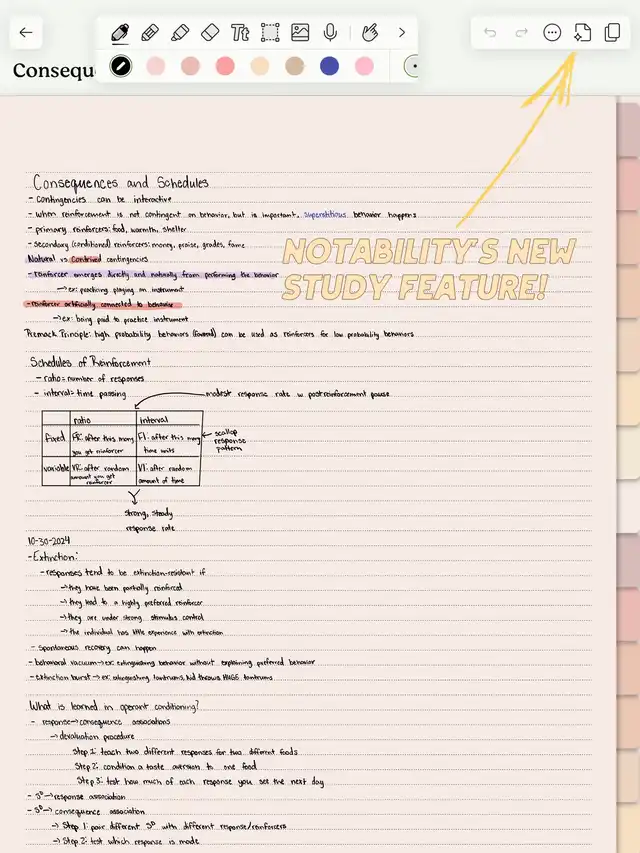 Consequ
NOTABILITY'S NEW
STUDY FEATURE!
Consequences and Schedules
- Contingencies can be interactive
- when reinforcement is not contingent on behavior, but is important, superstitious behavior happens
- primary reinforcers: food, warmth, shelter
- secondary (conditioned) reinforcers: money, praise, grades, fame
Natural vs Contrived contingencies
- reinforcer emerges directly and naturally from performing the behavior
→ ex: practicing playing an instrument
- reinforcer artificially connected to behavior
→ ex: being paid to practice instrument
Premack Principle: high probability behaviors (favored) can be used as reinforcers for low probability behaviors
Schedules of Reinforcement
- ratio = number of responses
- interval = time passing
modest response rate w postreinforcement pause
ratio interval
fixed FR: after this many you get reinforcer FI: after this many time units
scallop
response
pattern
variable VR: after random amount you get reinforcer VI: after random amount of time
strong, steady
response rate
10-30-2024
- Extinction:
- responses tend to be extinction-resistant if
→ they have been partially reinforced
→ they lead to a highly preferred reinforcer
→ they are under strong stimulus control
→ the individual has little experience with extinction
- spontaneous recovery can happen
- behavioral vacuum → ex: extinguishing behavior without explaining preferred behavior
- extinction burst → ex: extinguishing tantrums, kid throws HUGE tantrums
What is learned in operant conditioning?
- response → consequence associations
→ devaluation procedure
Step 1: teach two different responses for two different foods
Step 2: condition a taste aversion to one food
Step 3: test how much of each response you see the next day
- Sᴰ → response association
- Sᴰ → consequence association
→ Step 1: pair different Sᴰ with different response/reinforcers
→ Step 2: test which response is made